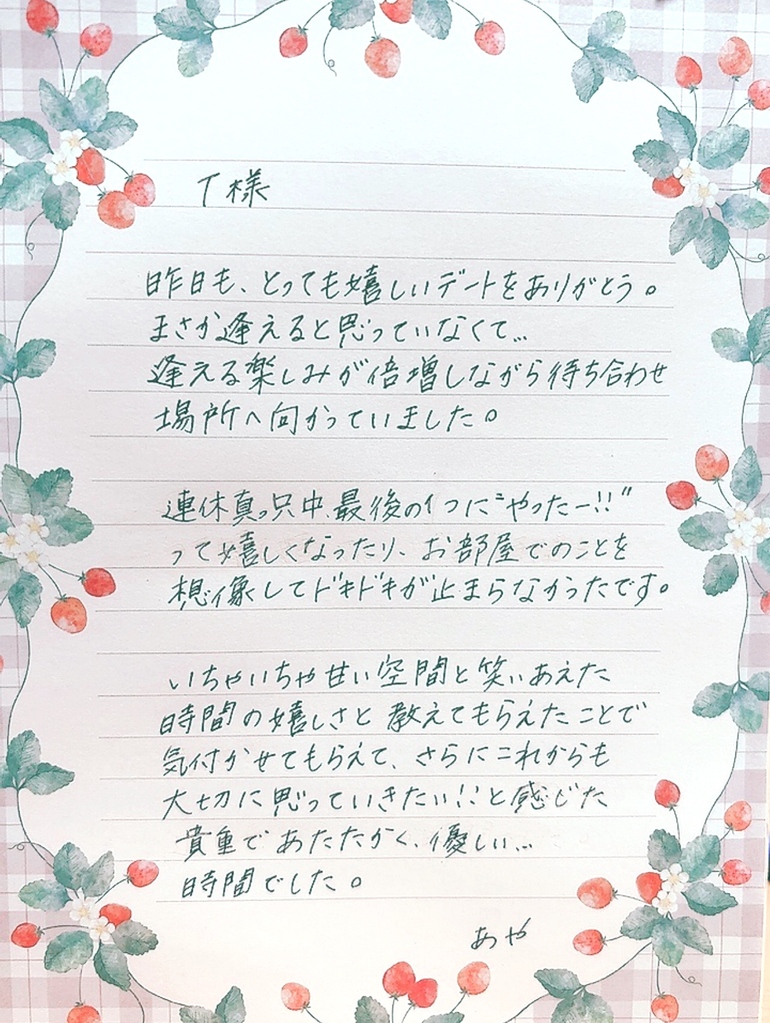 T様
昨日も、とっても嬉しいデートをありがとう。
まさか逢えると思っていなくて...
逢える楽しみが倍増しながら待ち合わせ
場所へ向かっていました。
連休真っ只中、最後の1つに"やったー!!"
って嬉しくなったり、お部屋でのことを
想像してドキドキが止まらなかったです。
いちゃいちゃ甘い空間と笑いあえた
時間の嬉しさと教えてもらえたことで
気付かせてもらえて、さらにこれからも
大切に思っていきたい!!と感じた
貴重であたたかく、優しい...
時間でした。
あや